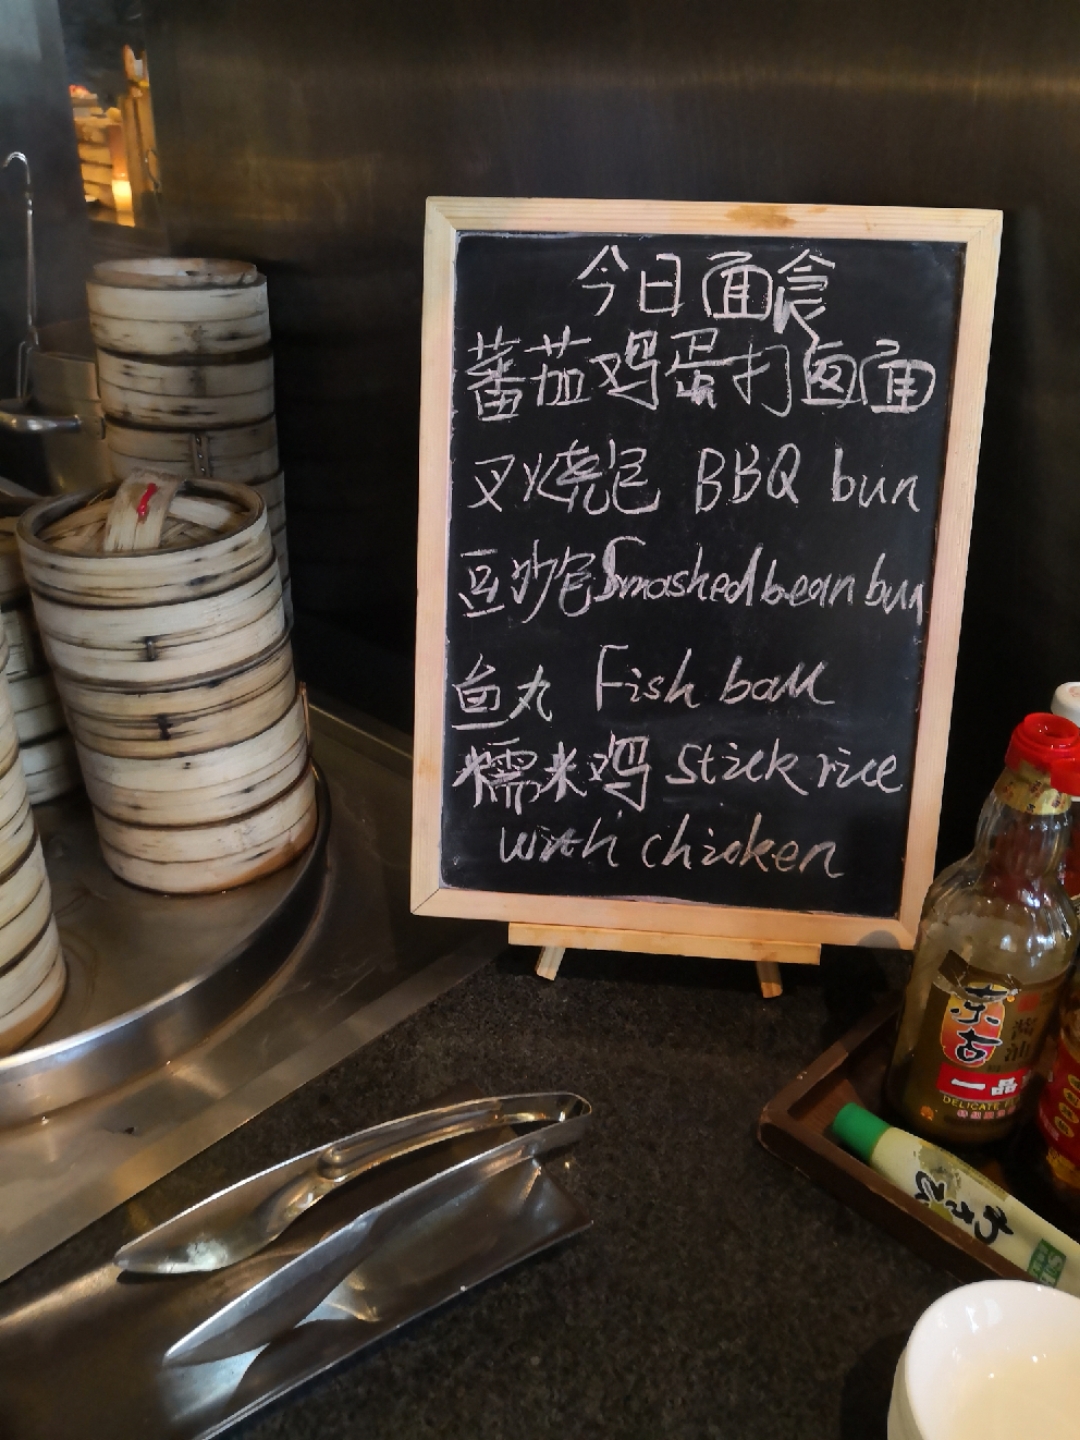 今日面食
蕃茄鸡蛋打卤面
叉烧包 BBQ bun
豆沙包 Smashed bean bun
鱼丸 Fish ball
糯米鸡 Stick rice
with chicken
东古
酱油
一品
DELICATE